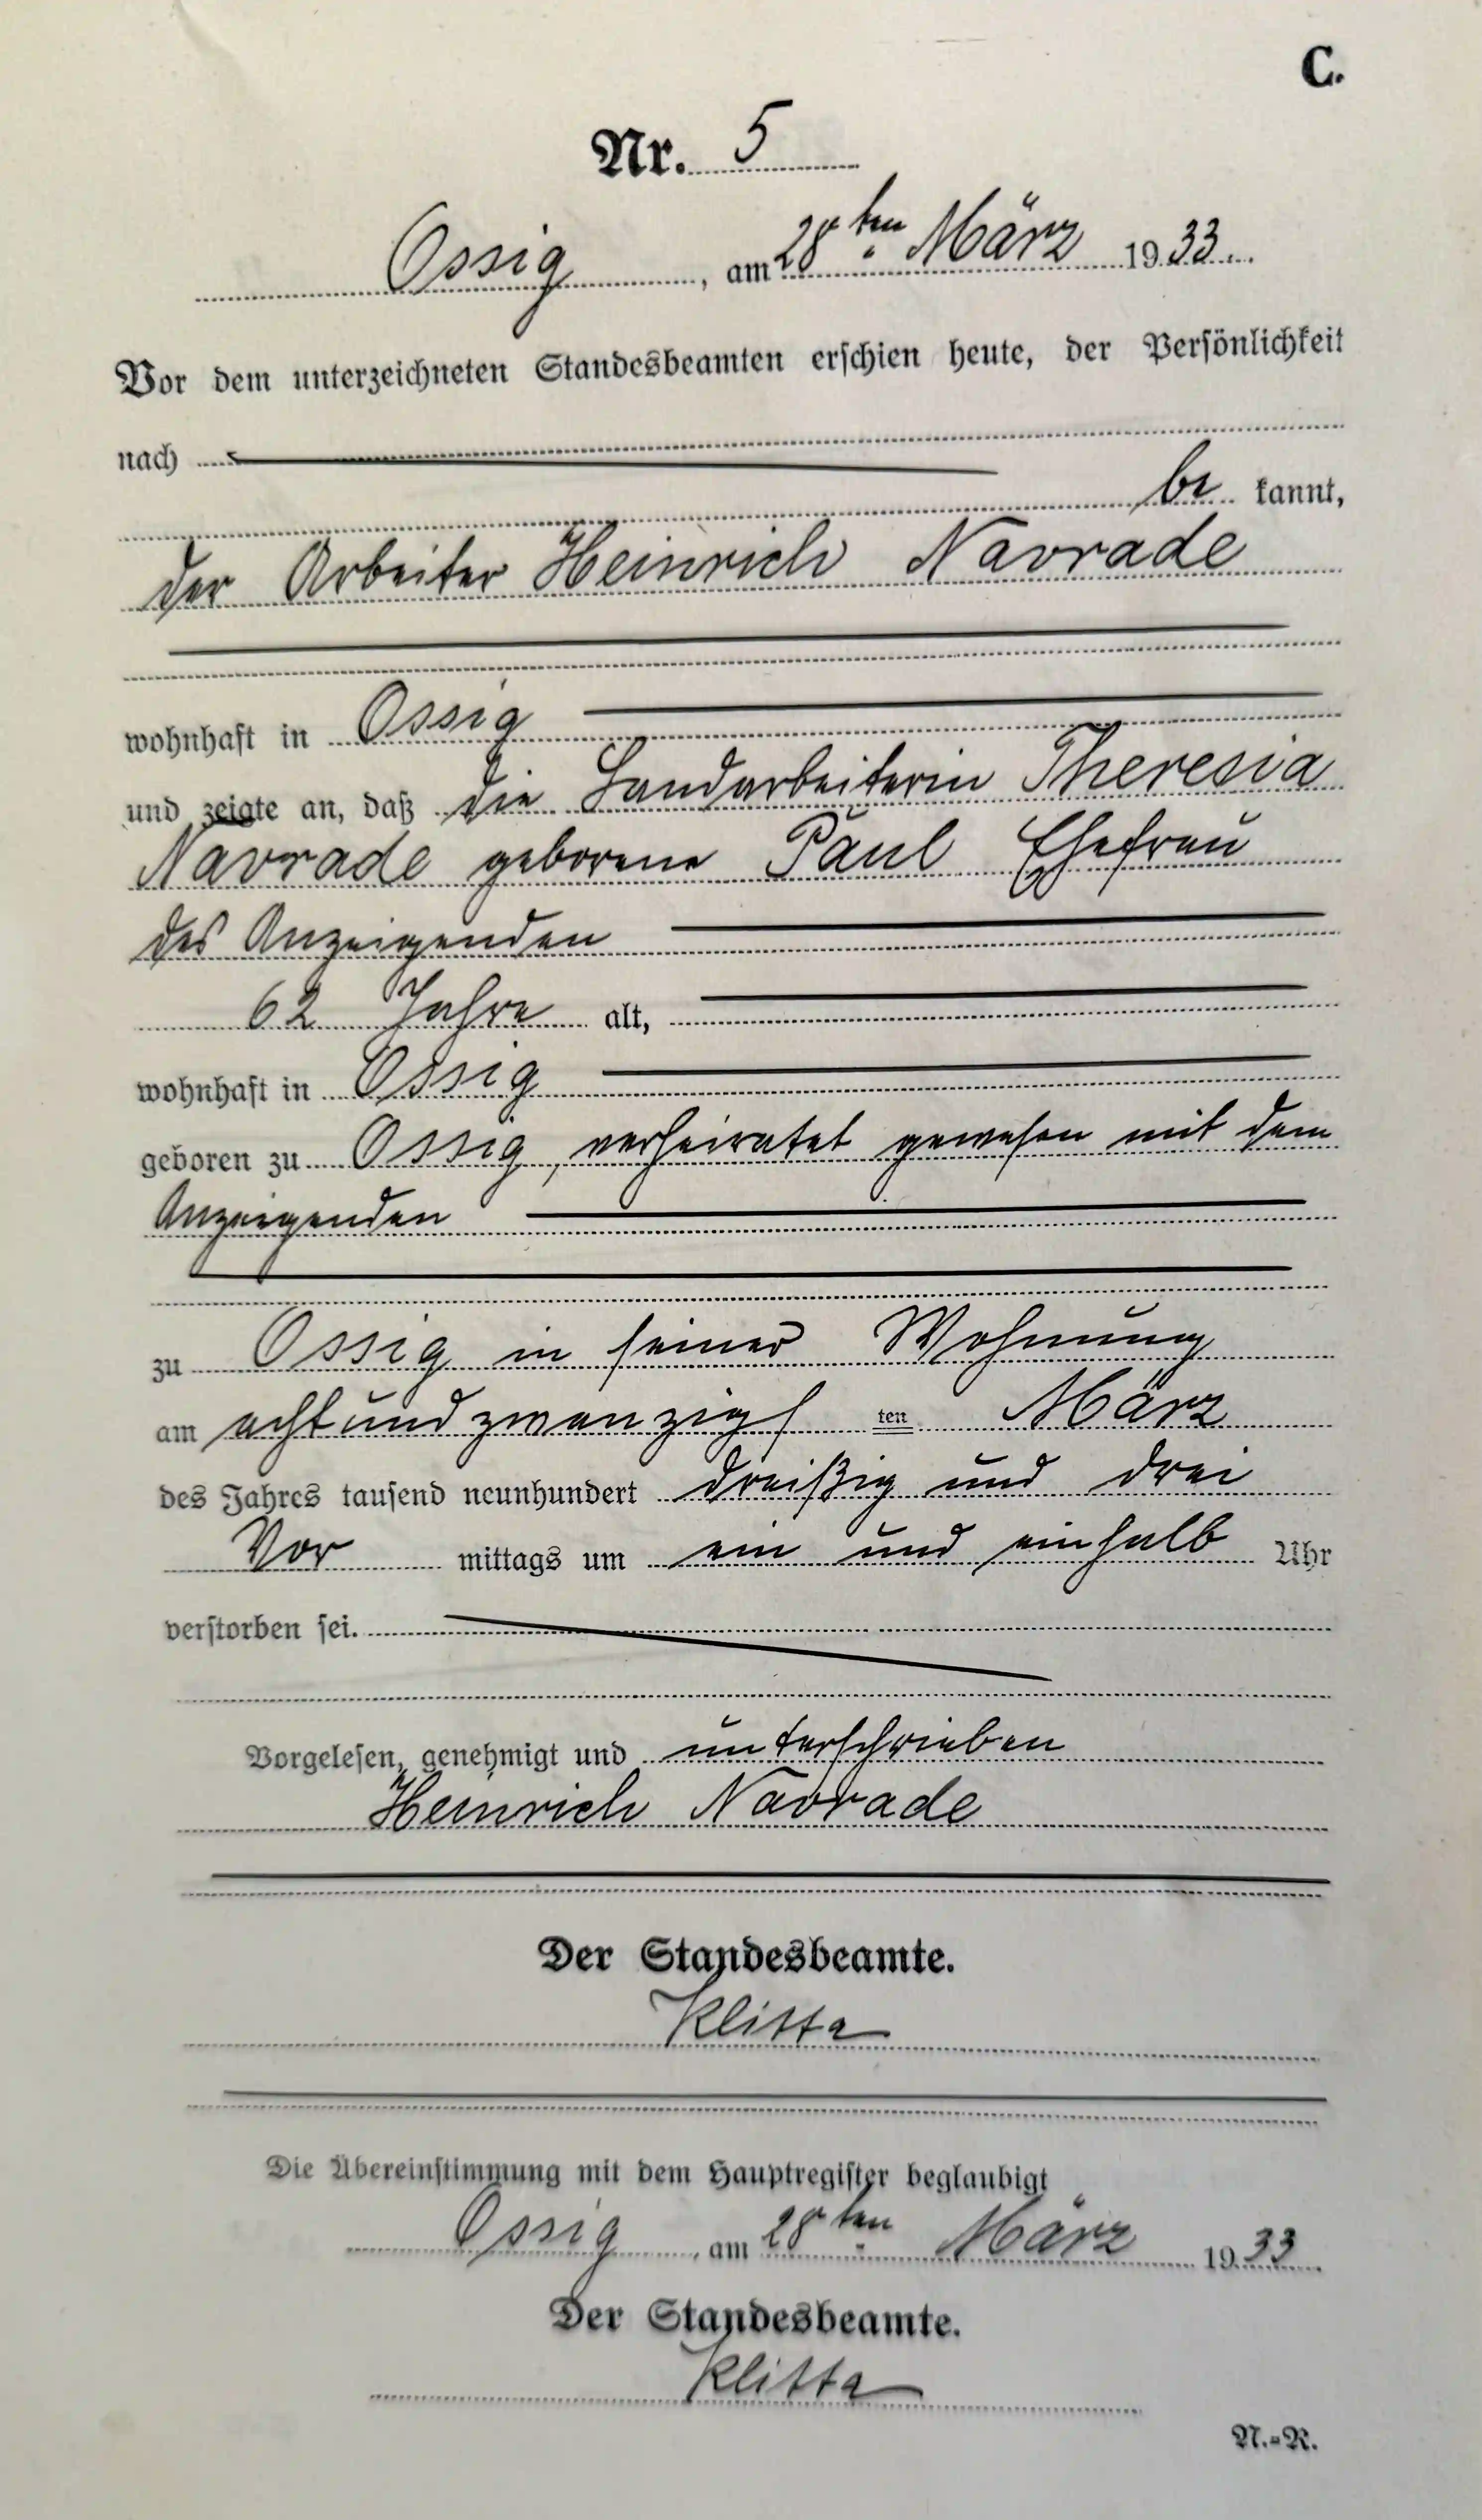 C.
Nr. 5
Ossig, am 28ten März 1933
Vor dem unterzeichneten Standesbeamten erschien heute, der Persönlichkeit
nach
be kannt,
der Arbeiter Heinrich Navrade
wohnhaft in Ossig
und zeigte an, daß die Landarbeiterin Theresia
Navrade geborene Paul Ehefrau
des Anzeigenden
62 Jahre alt,
wohnhaft in Ossig
geboren zu Ossig, verheiratet gewesen mit dem
Anzeigenden
zu Ossig in seiner Wohnung
am achtundzwanzigs ten März
des Jahres tausend neunhundert dreißig und drei
Vor mittags um ein und einhalb Uhr
verstorben sei.
Vorgelesen, genehmigt und unterschrieben
Heinrich Navrade
Der Standesbeamte.
Klitta
Die Übereinstimmung mit dem Hauptregister beglaubigt
Ossig, am 28ten März 1933
Der Standesbeamte.
Klitta
N.=R.